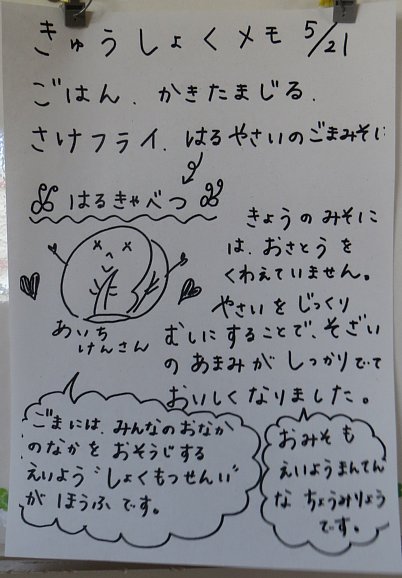 きゅうしょくメモ 5/21
ごはん、かきたまじる、
さけフライ、はるやさいのごまみそに
はるきゃべつ
あいち
けんさん
きょうのみそに
は、おさとうを
くわえていません。
やさいをじっくり
むしにすることで、そざい
のあまみがしっかりでて
おいしくなりました。
ごまには、みんなのおなか
のなかをおそうじする
えいよう“しょくもつせんい”
がほうふです。
おみそも
えいようまんてん
なちょうみりょう
です。